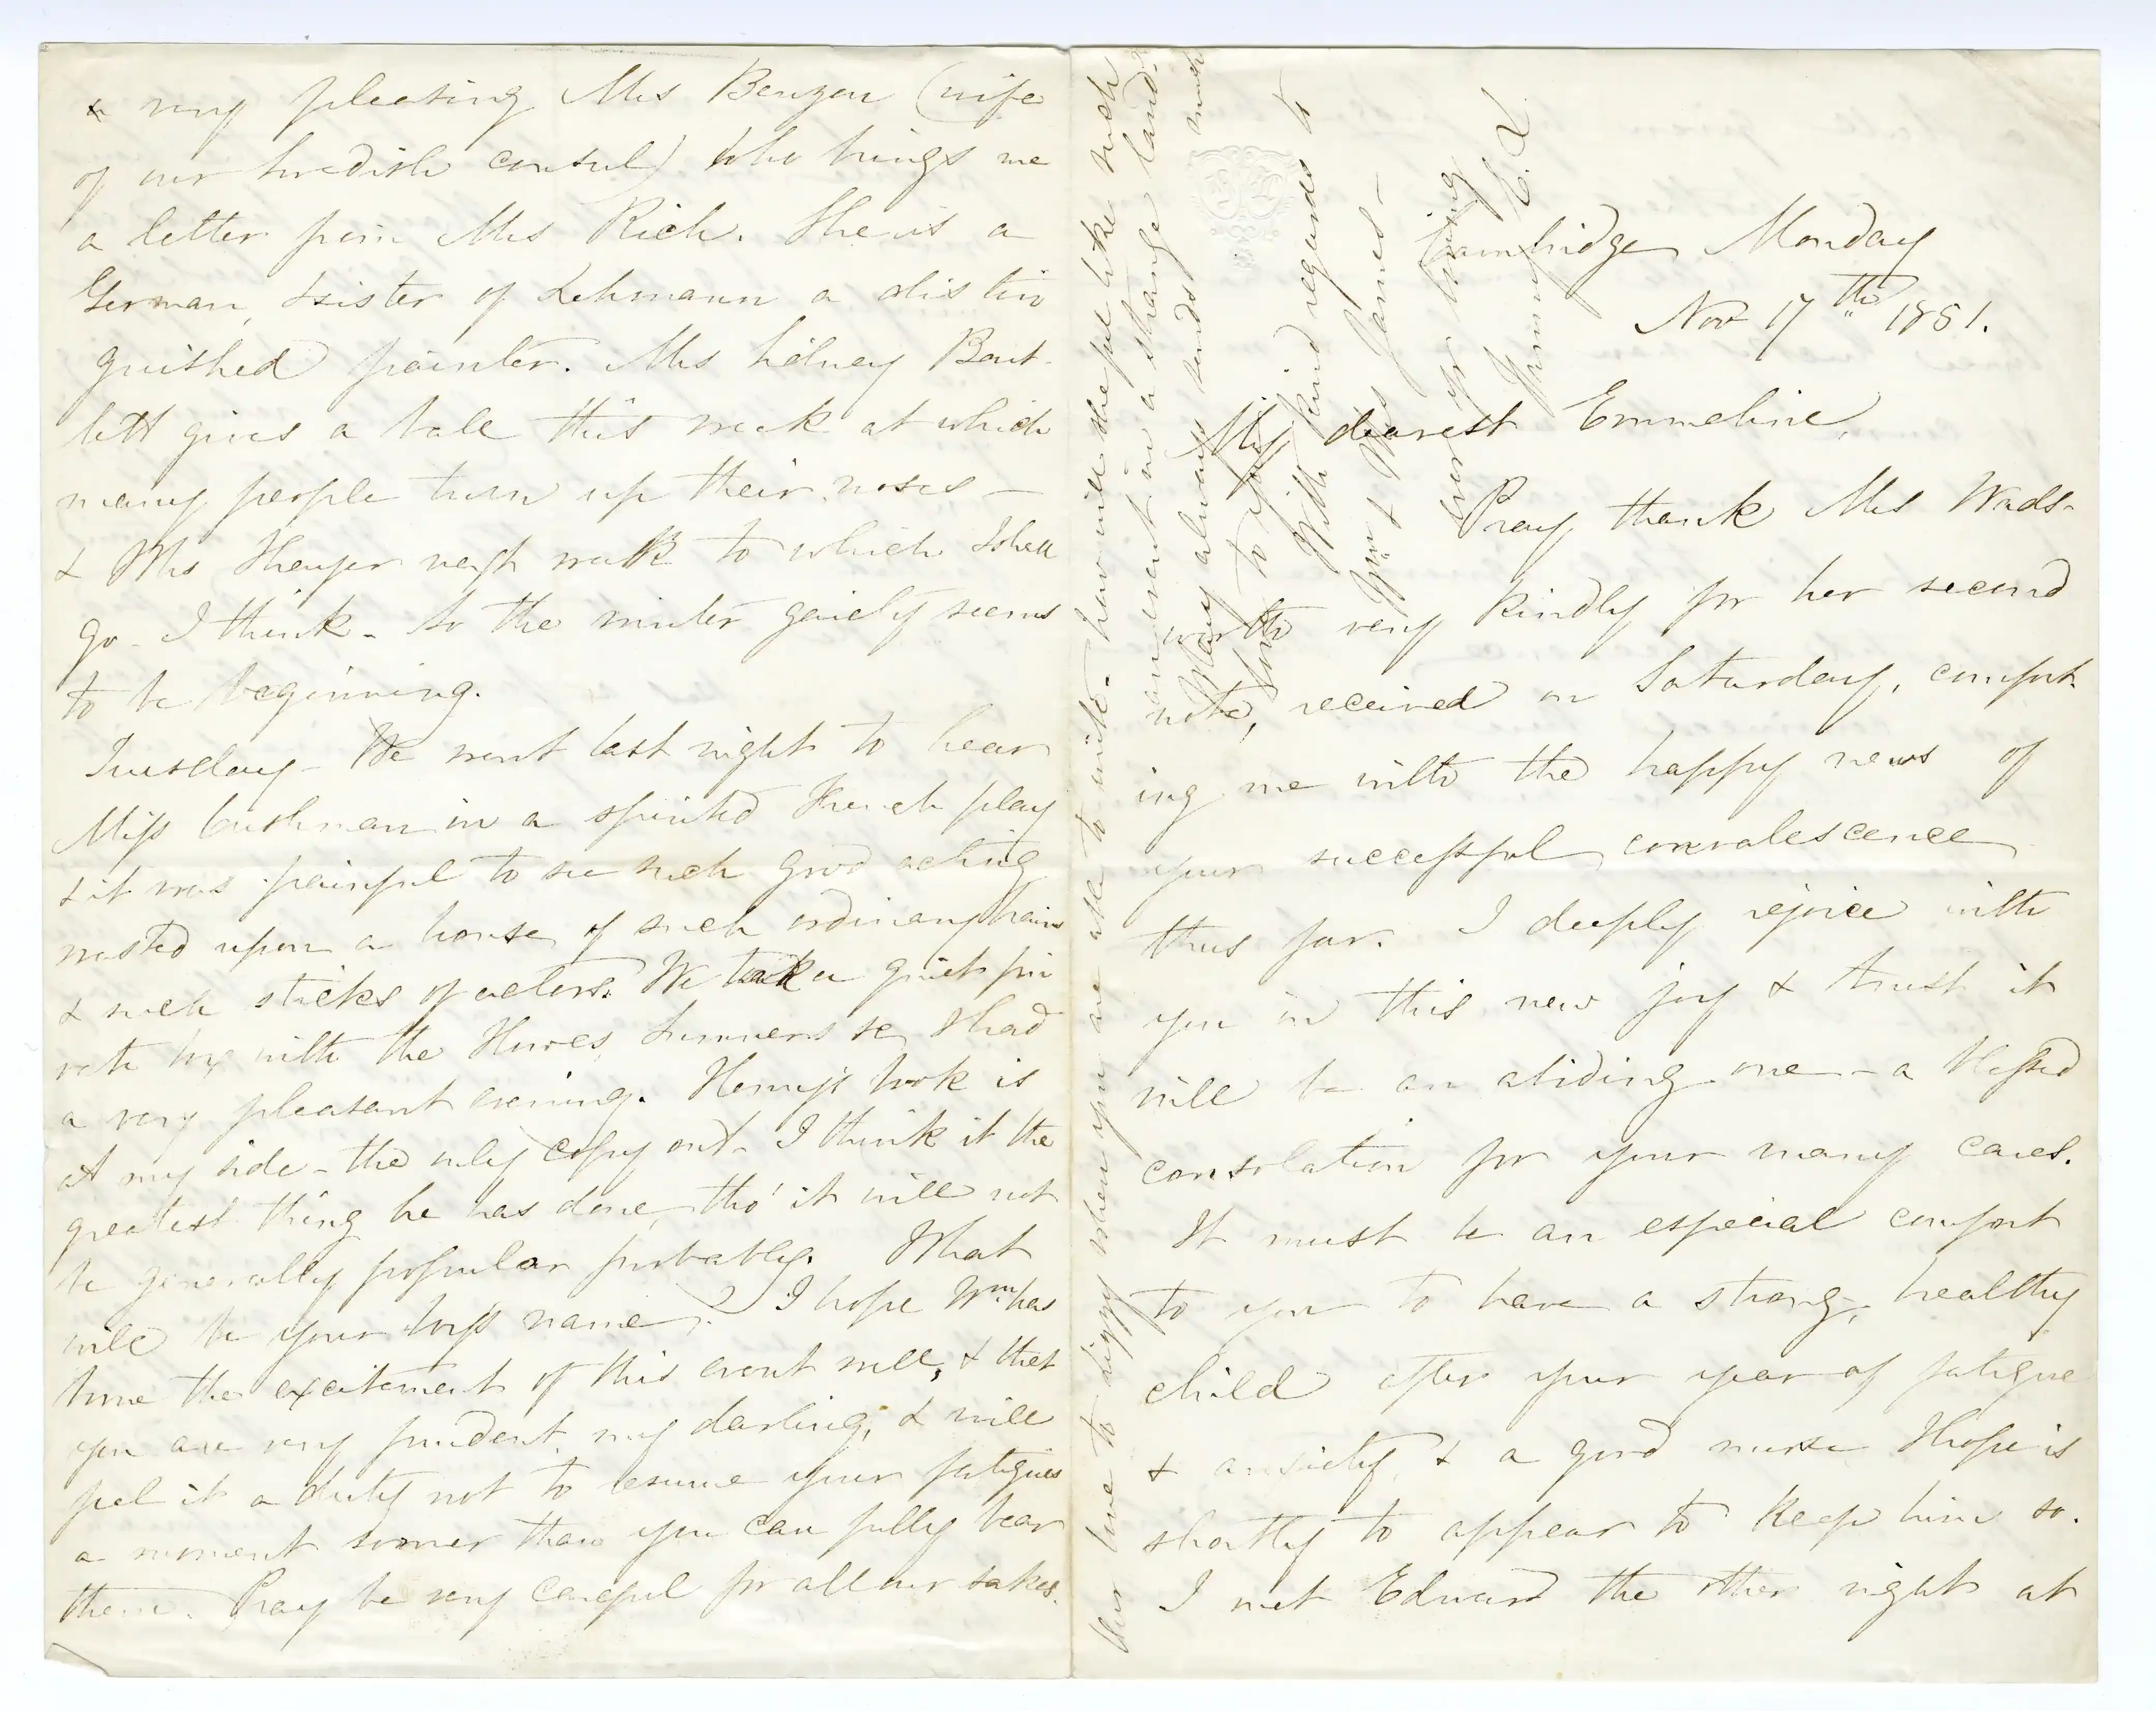 Cambridge Monday
Nov 17th 1851.
My dearest Emmeline,
Pray thank Mrs Wads-
worth very kindly for her second
note, received on Saturday, comfort-
ing me with the happy news of
your successful convalescence
thus far. I deeply rejoice with
you in this new joy & trust it
will be an abiding one – a blessed
consolation for your many cares.
It must be an especial comfort
to you to have a strong, healthy
child after your year of fatigue
& anxiety, & a good nurse I hope is
shortly to appear to keep him so.
I met Edward the other night at
a very pleasing Mrs Benzon (wife
of our Swedish consul) who brings me
a letter from Mrs Rich. She is a
German, & sister of Lehmann a distin
guished painter. Mrs Sidney Bart-
lett gives a ball this week at which
many people turn up their noses –
& Mrs Thayer next week to which I shall
go I think – So the winter gaiety seems
to be beginning.
Tuesday – We went last night to hear
Miss Cushman in a spirited French play
& it was painful to see such good acting
wasted upon a house of such ordinary brains
& such sticks of actors. We took a quiet pri
vate box with the Howes, Sumners &c & had
a very pleasant evening. Henry's book is
at my side – the only copy out – I think it the
greatest thing he has done, tho' it will not
be generally popular probably. What
will be your boy's name? I hope Wm has
borne the excitement of this event well, & that
you are very prudent, my darling, & will
feel it a duty not to resume your fatigues
a moment sooner than you can fully bear
them. Pray be very careful for all our sakes.
this line to Lizzy when you are able to write. how will she like such
an event in a strange land –
Mary always sends much
love to you
With kind regards to
Wm & Mrs James –
ever yr loving
Fanny E. L.